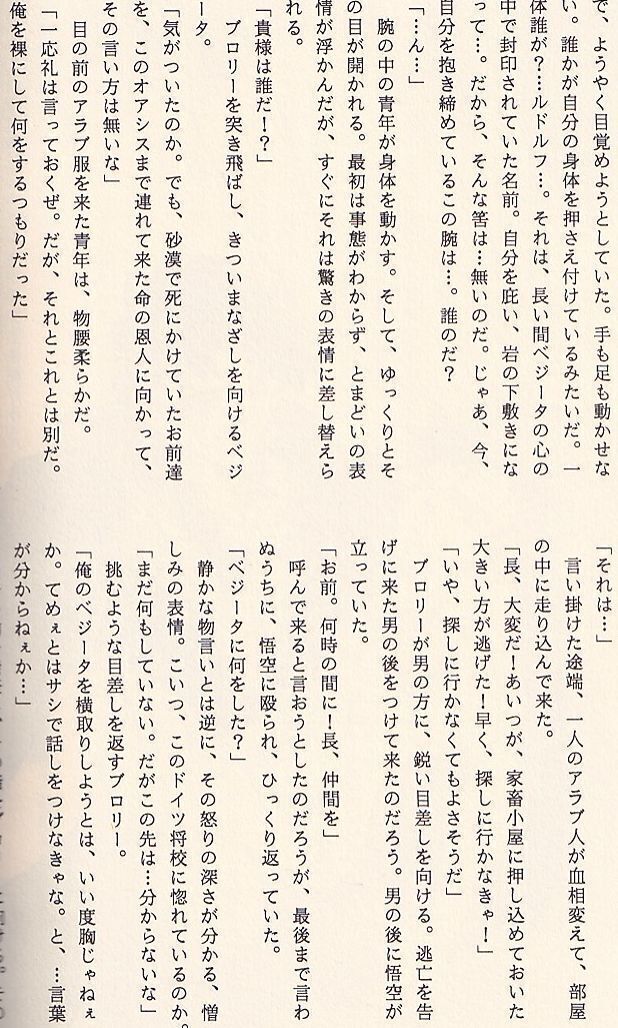 で、ようやく目覚めようとしていた。手も足も動かせな
い。誰かが自分の身体を押さえ付けているみたいだ。一
体誰が？…ルドルフ…。それは、長い間ベジータの心の
中で封印されていた名前。自分を庇い、岩の下敷きにな
って…。だから、そんな筈は…無いのだ。じゃあ、今、
自分を抱き締めているこの腕は…。誰のだ？
「…ん…」
腕の中の青年が身体を動かす。そして、ゆっくりとそ
の目が開かれる。最初は事態がわからず、とまどいの表
情が浮かんだが、すぐにそれは驚きの表情に差し替えら
れる。
「貴様は誰だ！？」
ブロリーを突き飛ばし、きついまなざしを向けるベジ
ータ。
「気がついたのか。でも、砂漠で死にかけていたお前達
を、このオアシスまで連れて来た命の恩人に向かって、
その言い方は無いな」
目の前のアラブ服を来た青年は、物腰柔らかだ。
「一応礼は言っておくぜ。だが、それとこれとは別だ。
俺を裸にして何をするつもりだった」
「それは…」
言い掛けた途端、一人のアラブ人が血相変えて、部屋
の中に走り込んで来た。
「長、大変だ！あいつが、家畜小屋に押し込めておいた
大きい方が逃げた！早く、探しに行かなきゃ！」
「いや、探しに行かなくてもよさそうだ」
ブロリーが男の方に、鋭い目差しを向ける。逃亡を告
げに来た男の後をつけて来たのだろう。男の後に悟空が
立っていた。
「お前。何時の間に！長、仲間を」
呼んで来ると言おうとしたのだろうが、最後まで言わ
ぬうちに、悟空に殴られ、ひっくり返っていた。
「ベジータに何をした？」
静かな物言いとは逆に、その怒りの深さが分かる、憎
しみの表情。こいつ、このドイツ将校に惚れているのか。
「まだ何もしていない。だがこの先は…分からないな」
挑むような目差しを返すブロリー。
「俺のベジータを横取りしようとは、いい度胸じゃねぇ
か。てめぇとはサシで話しをつけなきゃな。と、…言葉
が分からねぇか…」